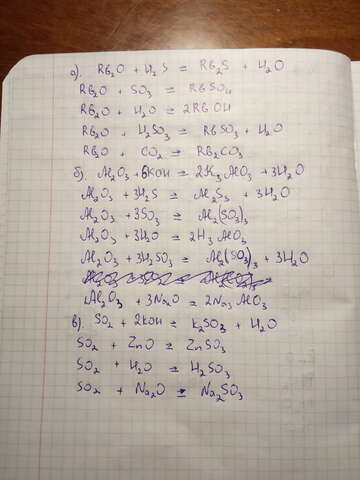 а). Rb₂O + H₂S = Rb₂S + H₂O
Rb₂O + SO₃ = RbSO₄
Rb₂O + H₂O = 2RbOH
Rb₂O + H₂SO₃ = RbSO₃ + H₂O
Rb₂O + CO₂ = Rb₂CO₃
б). Al₂O₃ + 6KOH = 2K₃AlO₃ + 3H₂O
Al₂O₃ + 3H₂S = Al₂S₃ + 3H₂O
Al₂O₃ + 3SO₃ = Al₂(SO₃)₃
Al₂O₃ + 3H₂O = 2H₃AlO₃
Al₂O₃ + 3H₂SO₃ = Al₂(SO₃)₃ + 3H₂O
Al₂O₃ + 3Na₂O = 2Na₃AlO₃
в). SO₂ + 2KOH = K₂SO₃ + H₂O
SO₂ + ZnO = ZnSO₃
SO₂ + H₂O = H₂SO₃
SO₂ + Na₂O = Na₂SO₃